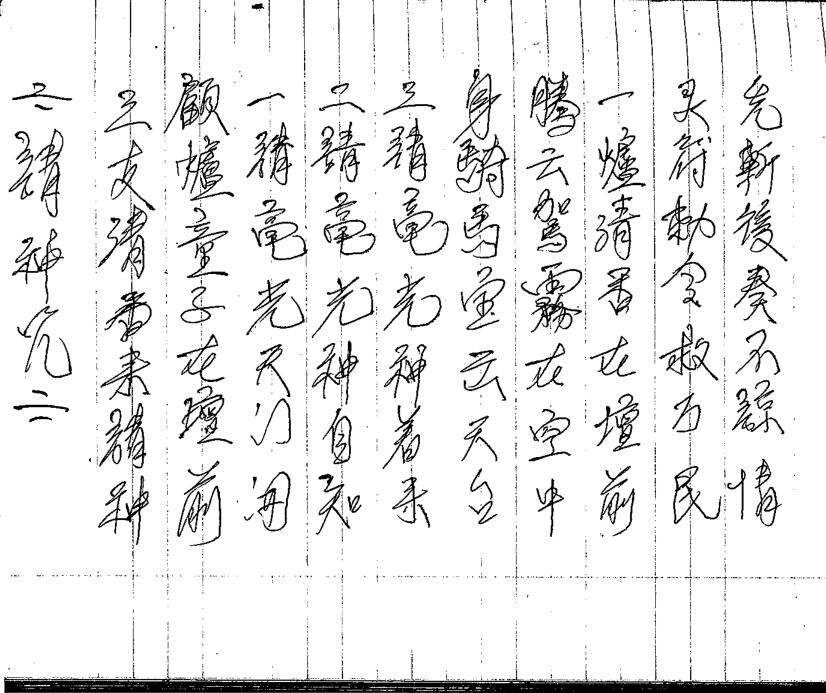 =請神咒=
三支清香来請神
顧爐童子在壇前
一請毫光天门開
二請毫光神自知
三請毫光神着来
身騎馬宝云天台
騰云駕霧在空中
一爐清香在壇前
灵符勅令救万民
先斬後奏不諒情